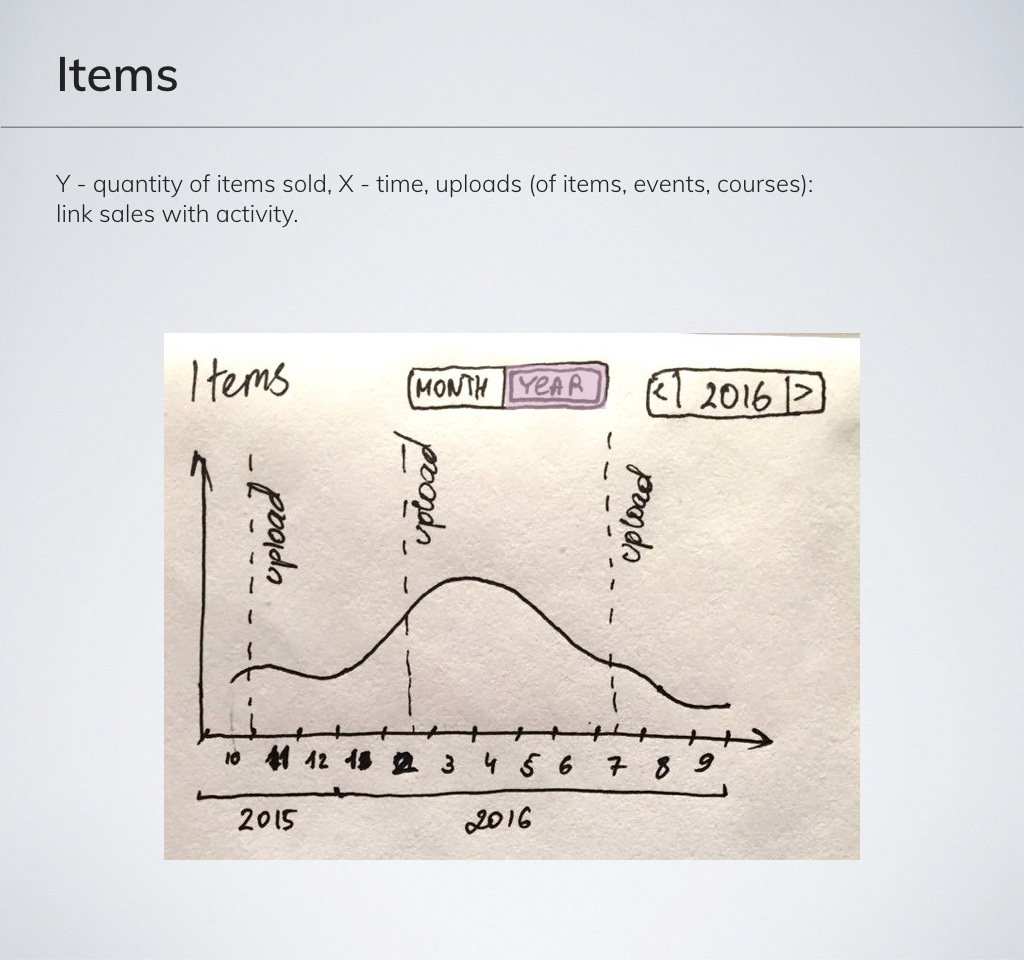 Items
Y - quantity of items sold, X - time, uploads (of items, events, courses):
link sales with activity.
Items
MONTH YEAR < 2016 >
upload upload upload
10 11 12 3 4 5 6 7 8 9
2015 2016